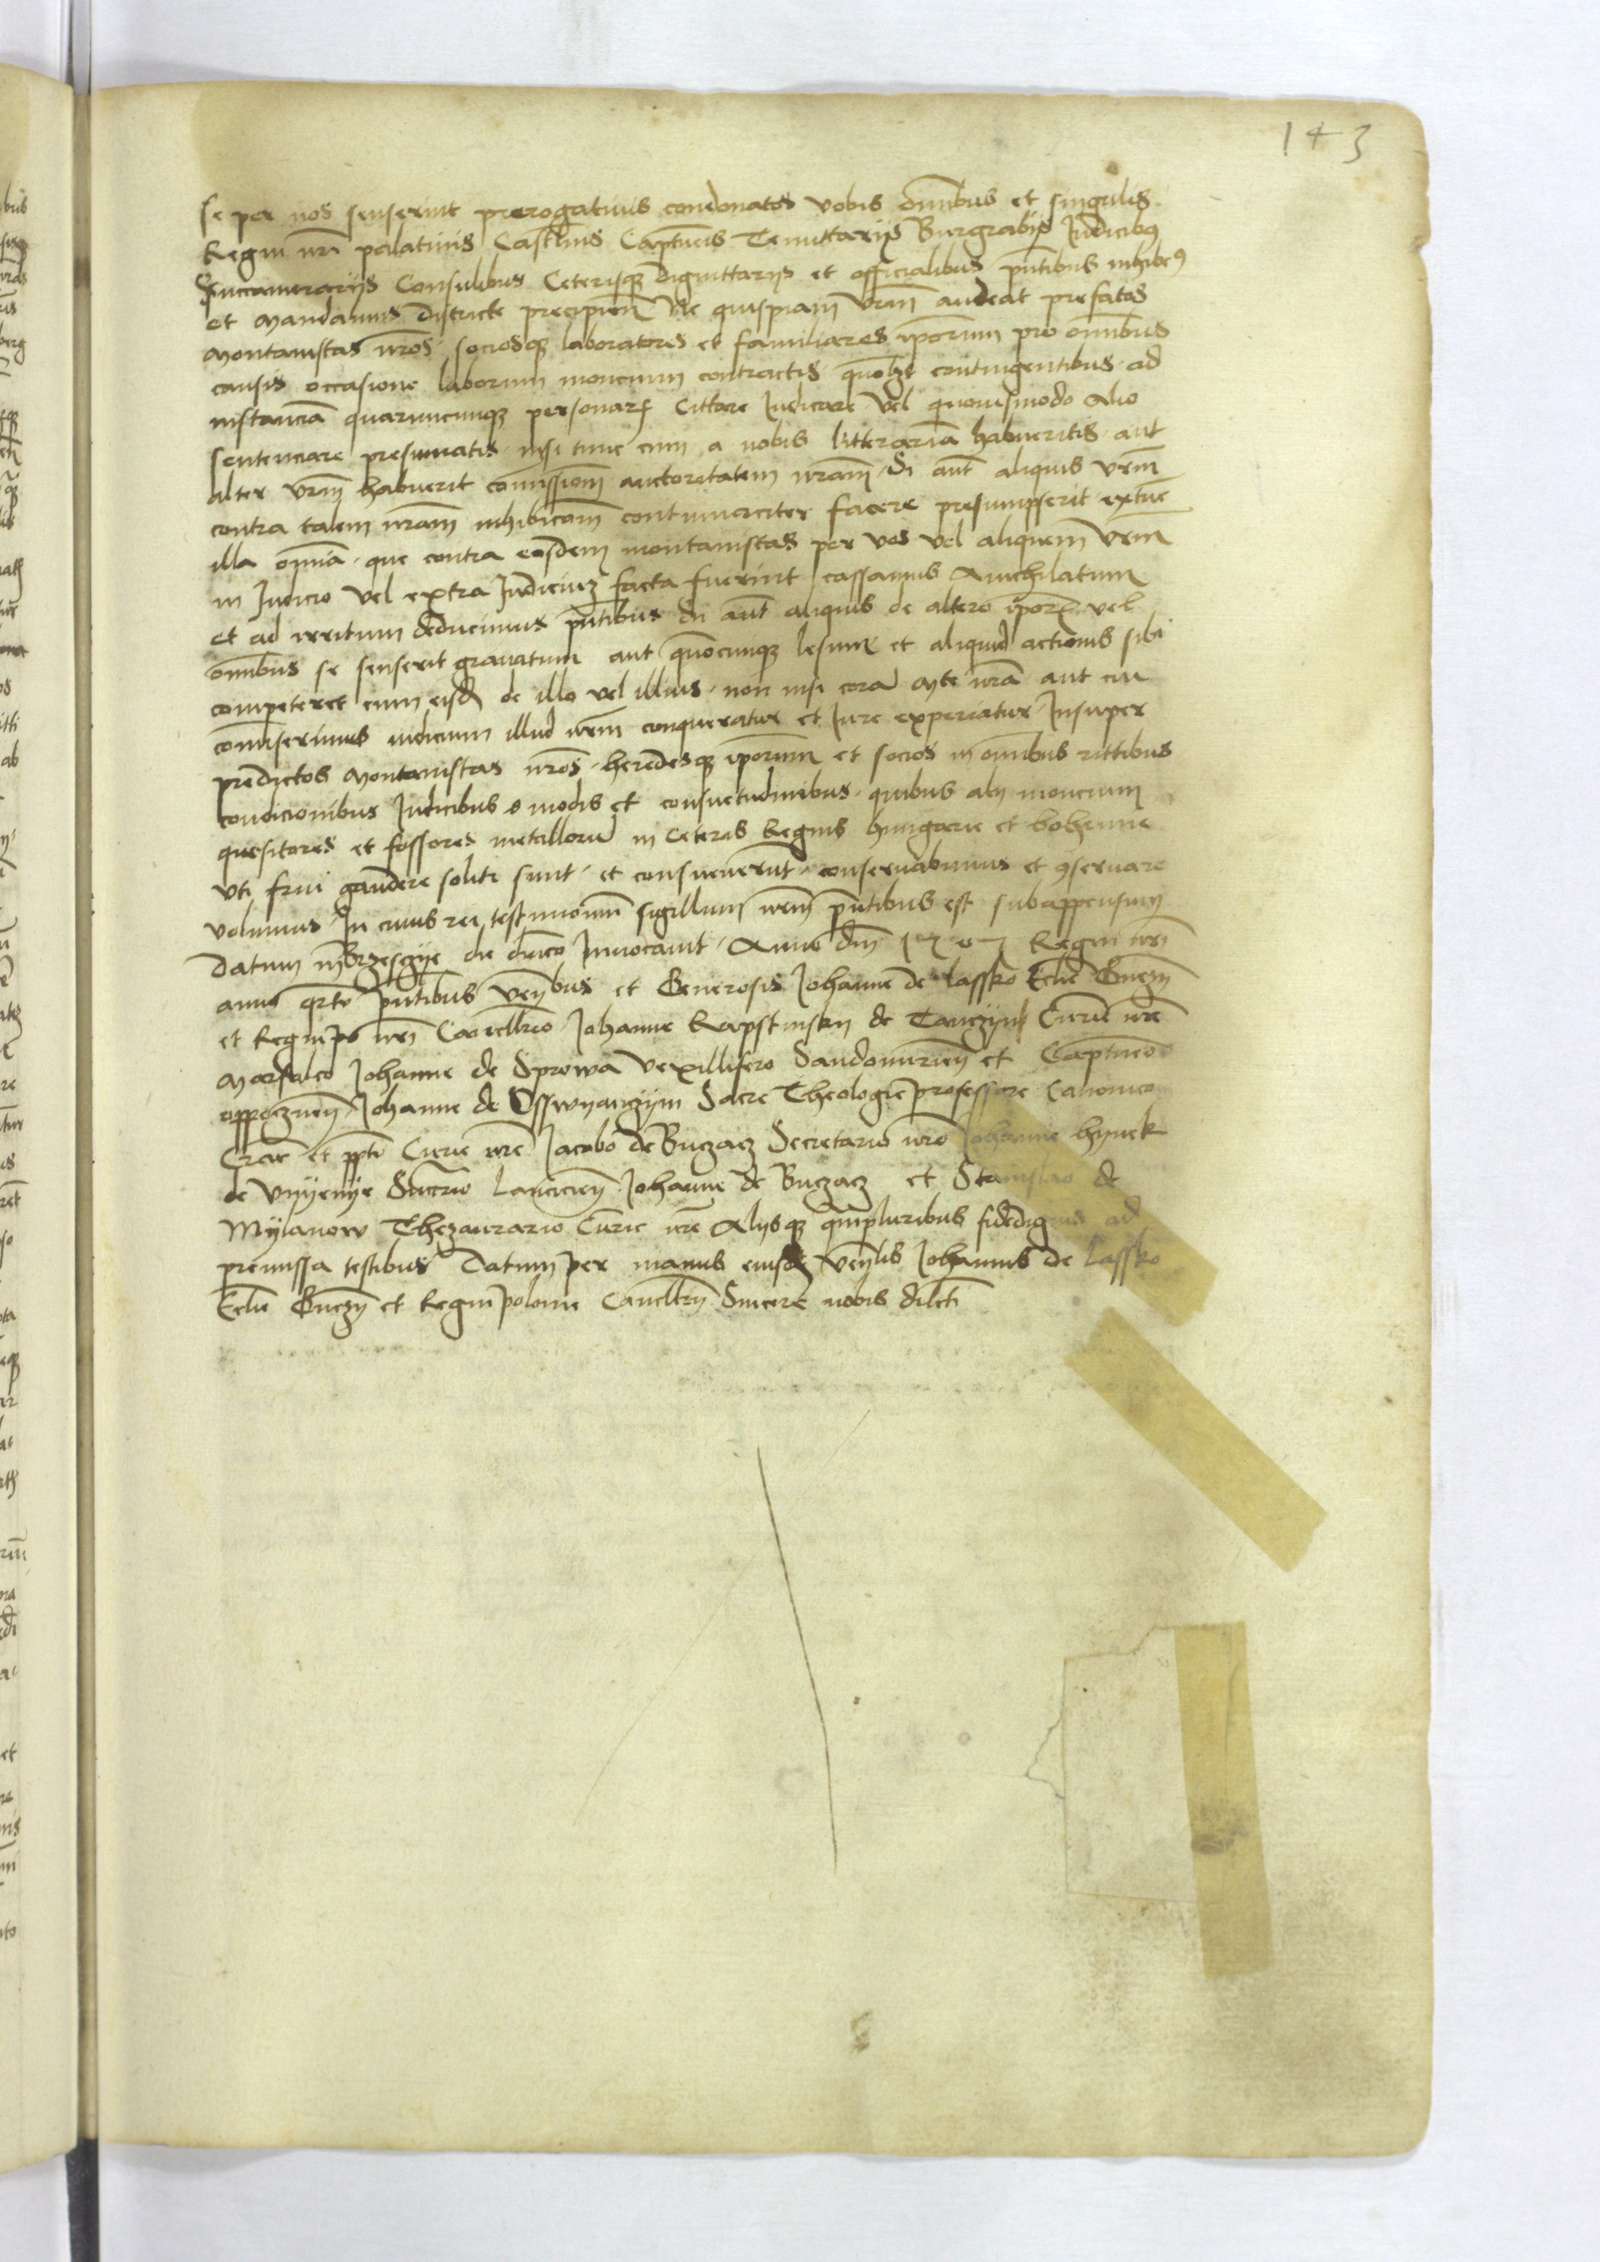 143
se per nos senserint prerogativis condonatos vobis omnibus et singulis
Regni nri palatinis Castellanis Captneis Tenuttariis Burgrabiis Judicibus
Succamerariis Consulibus Ceterisque dignittariis et officialibus pntibus inhibemus
et mandamus districte precipien Ne quispiam vrm audeat prefatos
montanistas nros sociosque laboratores et familiares iporum pro omnibus
causis occasione laborum moncium contractis quomodolibet contingentibus ad
instanciam quarumcunque personarum Cittare Judicare vel quovismodo alio
sentenciare presumatis nisi tunc cum a nobis litterariam habueritis aut
alter vrm habuerit comissionem auctoritatem nram Si aut aliquis vrm
contra talem nram inhibicionem contumaciter facere presumpserit extunc
illa omnia que contra eosdem montanistas per vos vel aliquem vrm
in Judicio vel extra Judicium facta fuerint cassamus Annichilatum
et ad irritum deducimus pntibus Si aut aliquis de altero iporum vel
omnibus se senserit gravatum aut quomcunque lesum et aliquid actionis sibi
competeret cum eisdem de illo vel illius non nisi coram Mte nra aut cui
comiserimus iudicium illud nrm conqueratur et Jure experiatur Insuper
predictos Montanistas nros heredesque iporum et socios in omnibus rittibus
condicionibus Judicibus modis et consuetudinibus quibus alii moncium
quesitores et fossores metallorum in Ceteris Regnis hungarie et bohemie
uti frui gaudere soliti sunt et consueverunt conservabimus et conservare
volumus In cuius rei testimonium sigillum nrm pntibus est subappensum
Datum in Brzesczye die dnico Invocavit Anno dni Regni nri
anno qrto pntibus venbus et Generosis Johanne de lassko Eclie Gnezn
et Regni po nri Cancellrio Johanne Rapstinsky de Tanczyn Curie nre
Marsalco Johanne de Sprowa vexillifero Sandomirien et Captneo
oppocznen Johanne de Osswyanczym Sacre Theologie professore Canonico
Crac et ppti Curie nre Jacobo de Buczacz Secretario nro Johanne hynek
de Unyenye Succrio lancicien Johanne de Buczacz et Stanislao de
Mylanow Thezaurario Curie nre Aliisque quampluribus fidedignis ad
premissa testibus Datum per manus eiusdem venlis Johannis de lassko
Eclie Gnezn et Regni polonie Cancellrii Sincere nobis dilcti